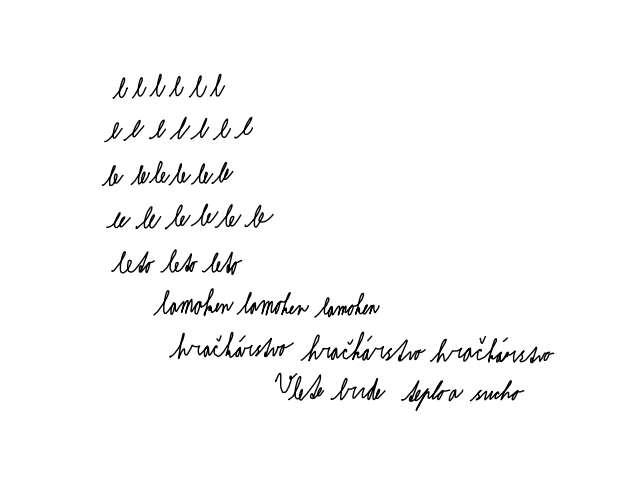 l l l l l l
l l l l l l l
le le le le le le
le le le le le le
leto leto leto
lamohen lamohen lamohen
hračkárstvo hračkárstvo hračkárstvo
V lete bude teplo a sucho